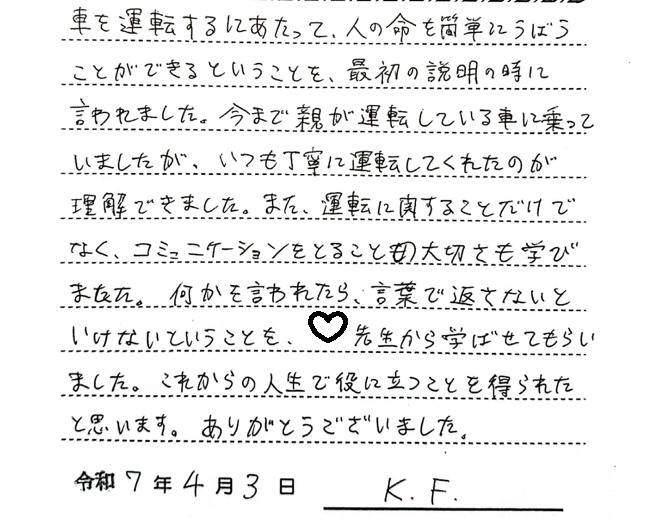 車を運転するにあたって、人の命を簡単にうばう
ことができるということを、最初の説明の時に
言われました。今まで親が運転している車に乗って
いましたが、いつも丁寧に運転してくれたのが
理解できました。また、運転に関することだけで
なく、コミュニケーションをとることの大切さも学び
ました。何かを言われたら、言葉で返さないと
いけないということを、♡先生から学ばせてもらい
ました。これからの人生で役に立つことを得られた
と思います。ありがとうございました。
令和7年4月3日 K.F.